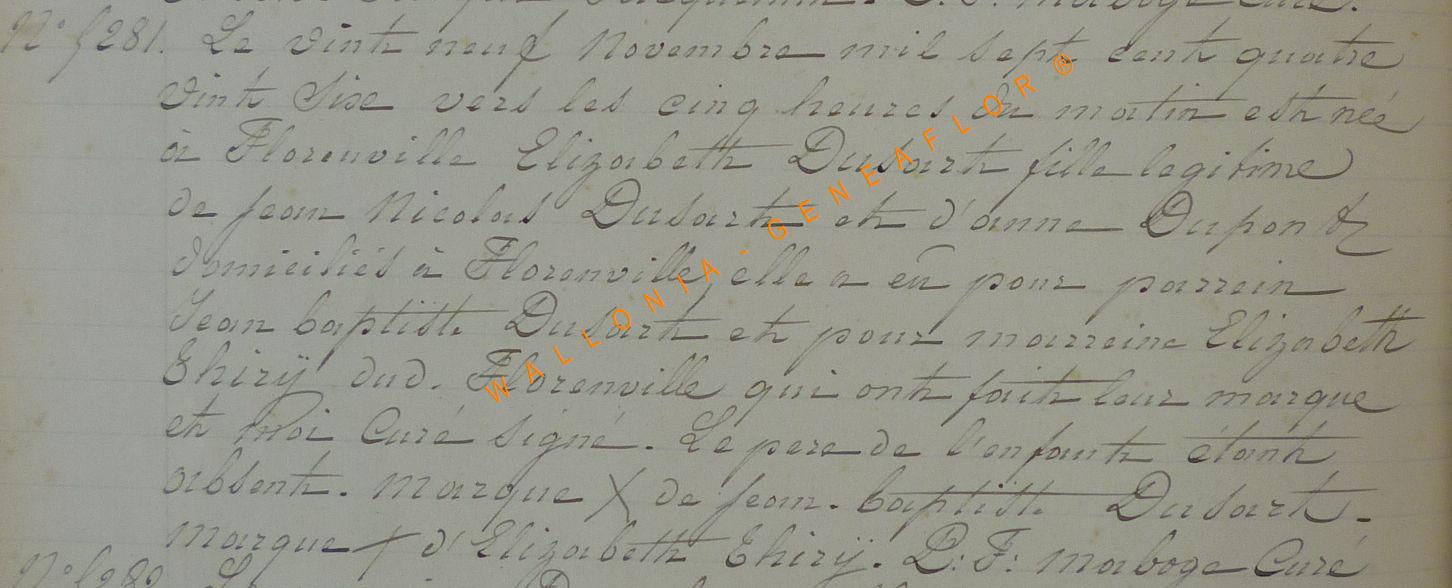 Jacquemin. P. F. maboge Curé.
N° 5281. Le vint neuf Novembre mil sept cent quatre
vint Six vers les cinq heures du matin est née
à Florenville Elizabeth Dusart fille legitime
de jean Nicolas Dusart et d'anne Dupont
domiciliés à Florenville, elle a eû pour parrein
Jean baptiste Dusart et pour marreine Elizabeth
Thirÿ dud. Florenville qui ont fait leur marque
et moi Curé signé. Le pere de l'enfant étant
absent. Marque X de jean. baptiste Dusart.
Marque + d'Elizabeth Thirÿ. P: F: maboge Curé
N° 5282. Le
WALLONIA - GENEAFLOR ®